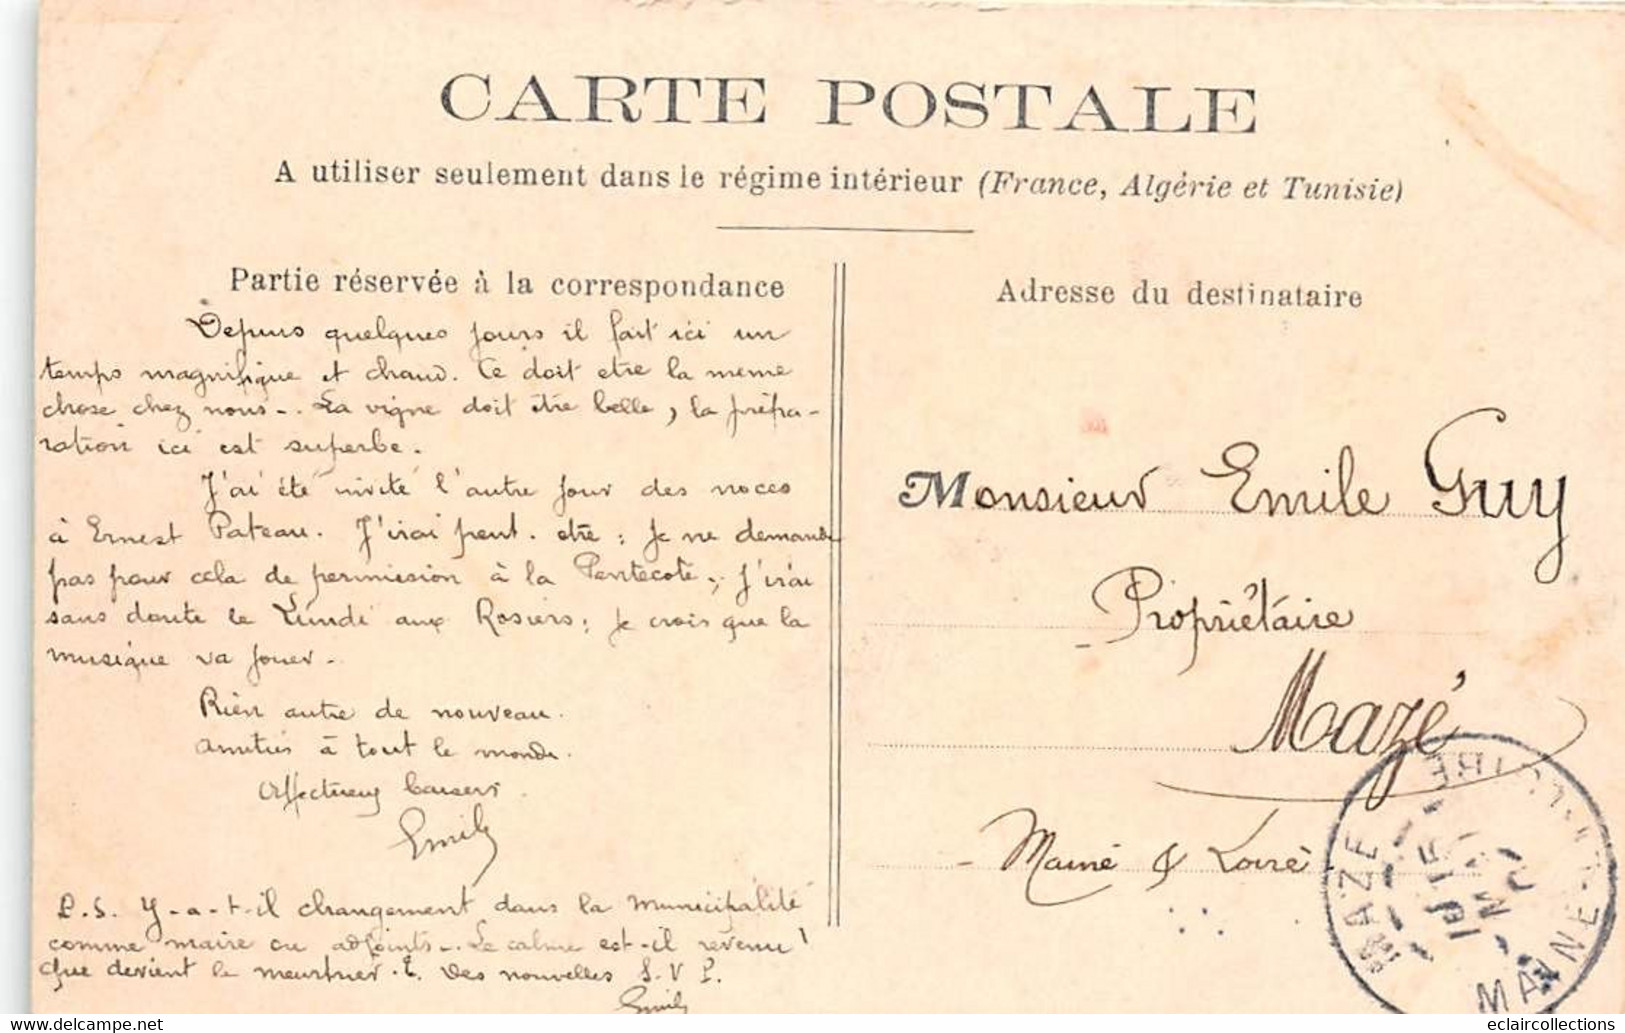 CARTE POSTALE
A utiliser seulement dans le régime intérieur (France, Algérie et Tunisie)
Partie réservée à la correspondance
Depuis quelques jours il fait ici un
temps magnifique et chaud. Ce doit etre la meme
chose chez nous -. La vigne doit être belle, la prépa-
ration ici est superbe.
J'ai été invité l'autre jour des noces
à Ernest Pateau. J'irai peut-etre : Je ne demande
pas pour cela de permission à la Pentecote ; J'irai
sans doute le Lundi aux Rosiers ; je crois que la
musique va jouer -
Rien autre de nouveau.
Amitiés à tout le monde.
Affectueux baisers.
Emile
P.S. Y-a-t-il changement dans la Municipalité
comme maire ou adjoints -. Le calme est-il revenu !
Que devient le meurtrier. E. Des nouvelles S.V.P.
Emile
Adresse du destinataire
Monsieur Emile Guy
Propriétaire
Mazé
Maine & Loire
MAZÉ
MAINE-ET-LOIRE
15
MAI
eclaircollections
delcampe.net
https://www.eclaircollections.fr